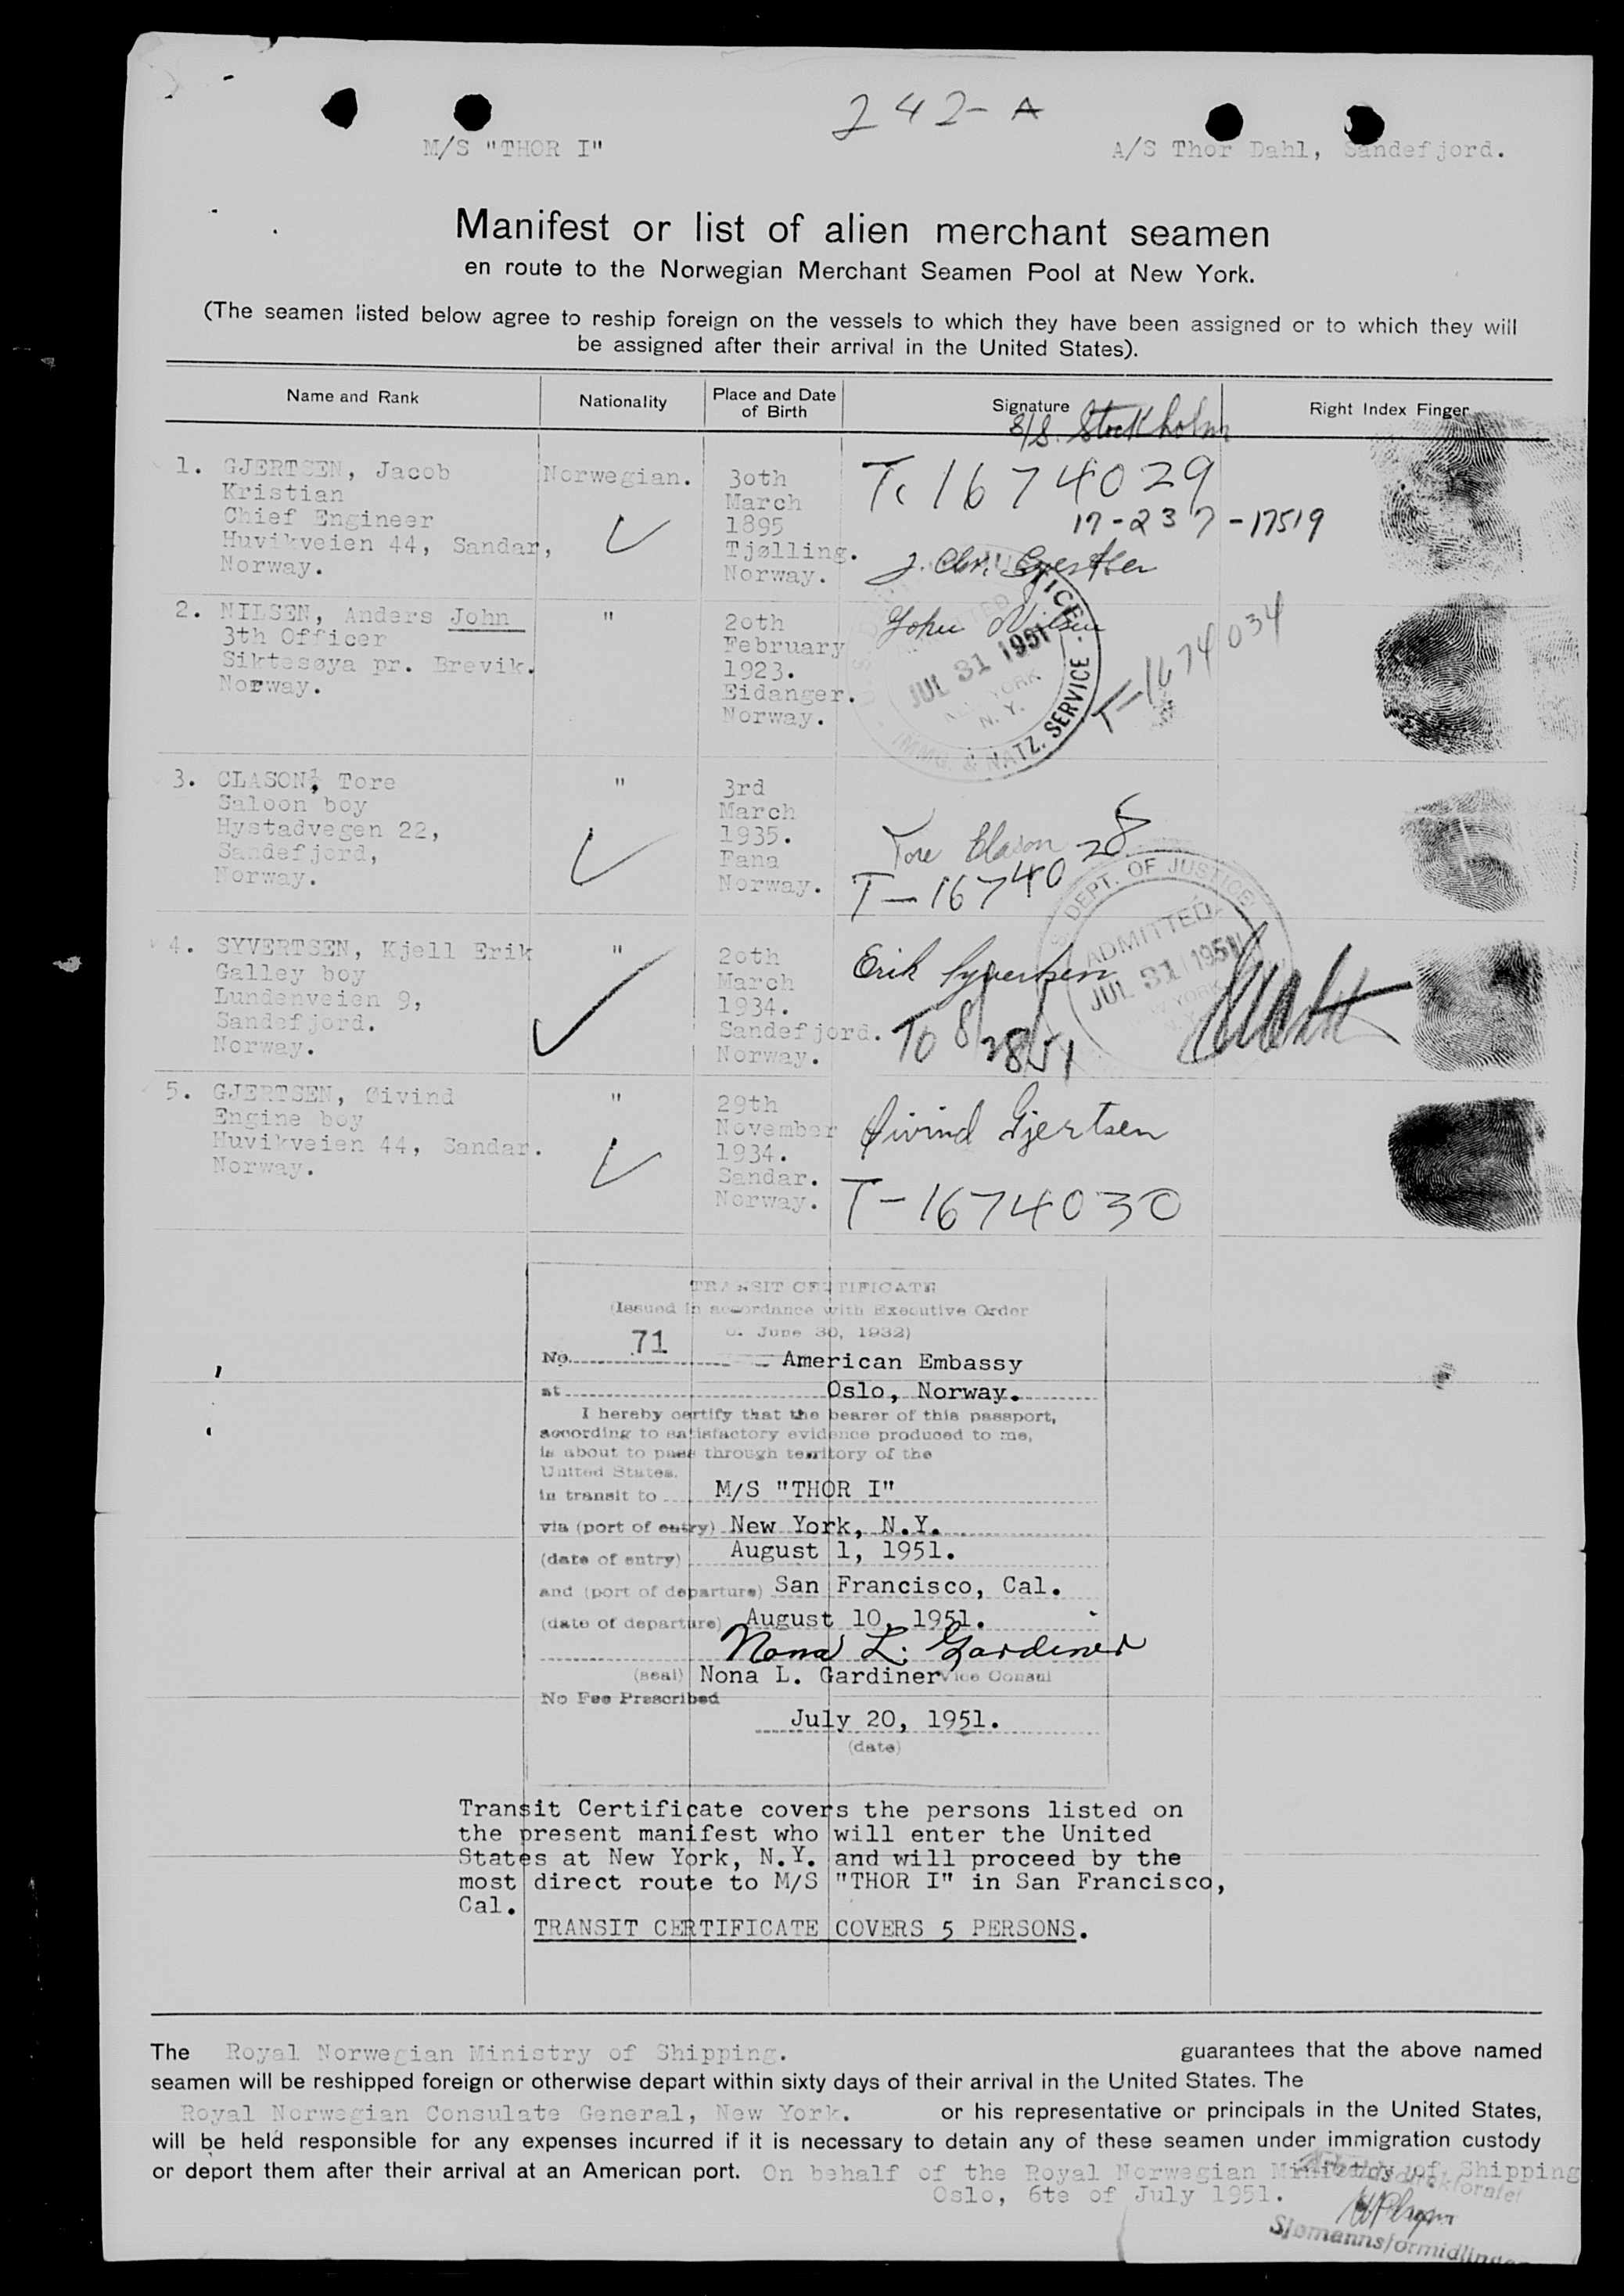 242-A
M/S "THOR I"
A/S Thor Dahl, Sandefjord.
Manifest or list of alien merchant seamen
en route to the Norwegian Merchant Seamen Pool at New York.
(The seamen listed below agree to reship foreign on the vessels to which they have been assigned or to which they will
be assigned after their arrival in the United States).
Name and Rank
Nationality
Place and Date
of Birth
Signature
Right Index Finger
S/S. Stockholm
1. GJERTSEN, Jacob
Kristian
Chief Engineer
Huvikveien 44, Sandar,
Norway.
Norwegian.
30th
March
1895
Tjølling.
Norway.
T. 1674029
17-237-17519
J. Chr. Gjertsen
2. NILSEN, Anders John
3th Officer
Siktesøya pr. Brevik.
Norway.
"
20th
February
1923.
Eidanger.
Norway.
John Nilsen
T-1674034
JUL 31 1951
NEW YORK
N. Y.
IMMG. & NATZ. SERVICE
3. CLASON, Tore
Saloon boy
Hystadvegen 22,
Sandefjord,
Norway.
"
3rd
March
1935.
Fana
Norway.
Tore Clason
T-1674028
DEPT. OF JUSTICE
ADMITTED
JUL 31 1951
4. SYVERTSEN, Kjell Erik
Galley boy
Lundenveien 9,
Sandefjord.
Norway.
"
20th
March
1934.
Sandefjord.
Norway.
Erik Syvertsen
To 8/28/51
5. GJERTSEN, Øivind
Engine boy
Huvikveien 44, Sandar.
Norway.
"
29th
November
1934.
Sandar.
Norway.
Øivind Gjertsen
T-1674030
TRANSIT CERTIFICATE
(Issued in accordance with Executive Order
June 30, 1932)
No. 71
American Embassy
at Oslo, Norway.
I hereby certify that the bearer of this passport,
according to satisfactory evidence produced to me,
is about to pass through territory of the
United States.
in transit to M/S "THOR I"
via (port of entry) New York, N.Y.
(date of entry) August 1, 1951.
and (port of departure) San Francisco, Cal.
(date of departure) August 10, 1951.
Nona L. Gardiner
(seal) Nona L. Gardiner Vice Consul
No Fee Prescribed
July 20, 1951.
(date)
Transit Certificate covers the persons listed on
the present manifest who will enter the United
States at New York, N.Y. and will proceed by the
most direct route to M/S "THOR I" in San Francisco,
Cal.
TRANSIT CERTIFICATE COVERS 5 PERSONS.
The Royal Norwegian Ministry of Shipping. guarantees that the above named
seamen will be reshipped foreign or otherwise depart within sixty days of their arrival in the United States. The
Royal Norwegian Consulate General, New York. or his representative or principals in the United States,
will be held responsible for any expenses incurred if it is necessary to detain any of these seamen under immigration custody
or deport them after their arrival at an American port. On behalf of the Royal Norwegian Ministry of Shipping
Oslo, 6te of July 1951.